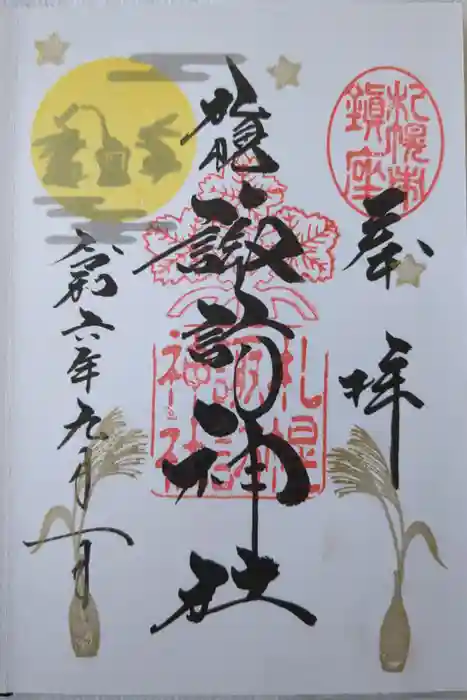 札幌市
鎮座
奉拝
札幌諏訪神社
札幌
諏訪
神社
令和六年九月一日